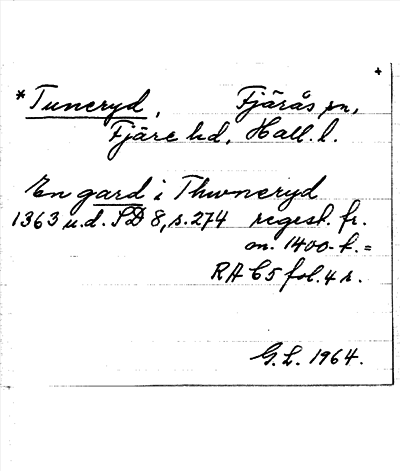 +
*Tuneryd, Fjärås sn,
Fjäre hd, Hall. l.
En gard i Thwneryd
1363 u.d. SD 8, s. 274 regest. fr.
m. 1400-t. =
RA C5 fol. 4 r.
G.L. 1964.